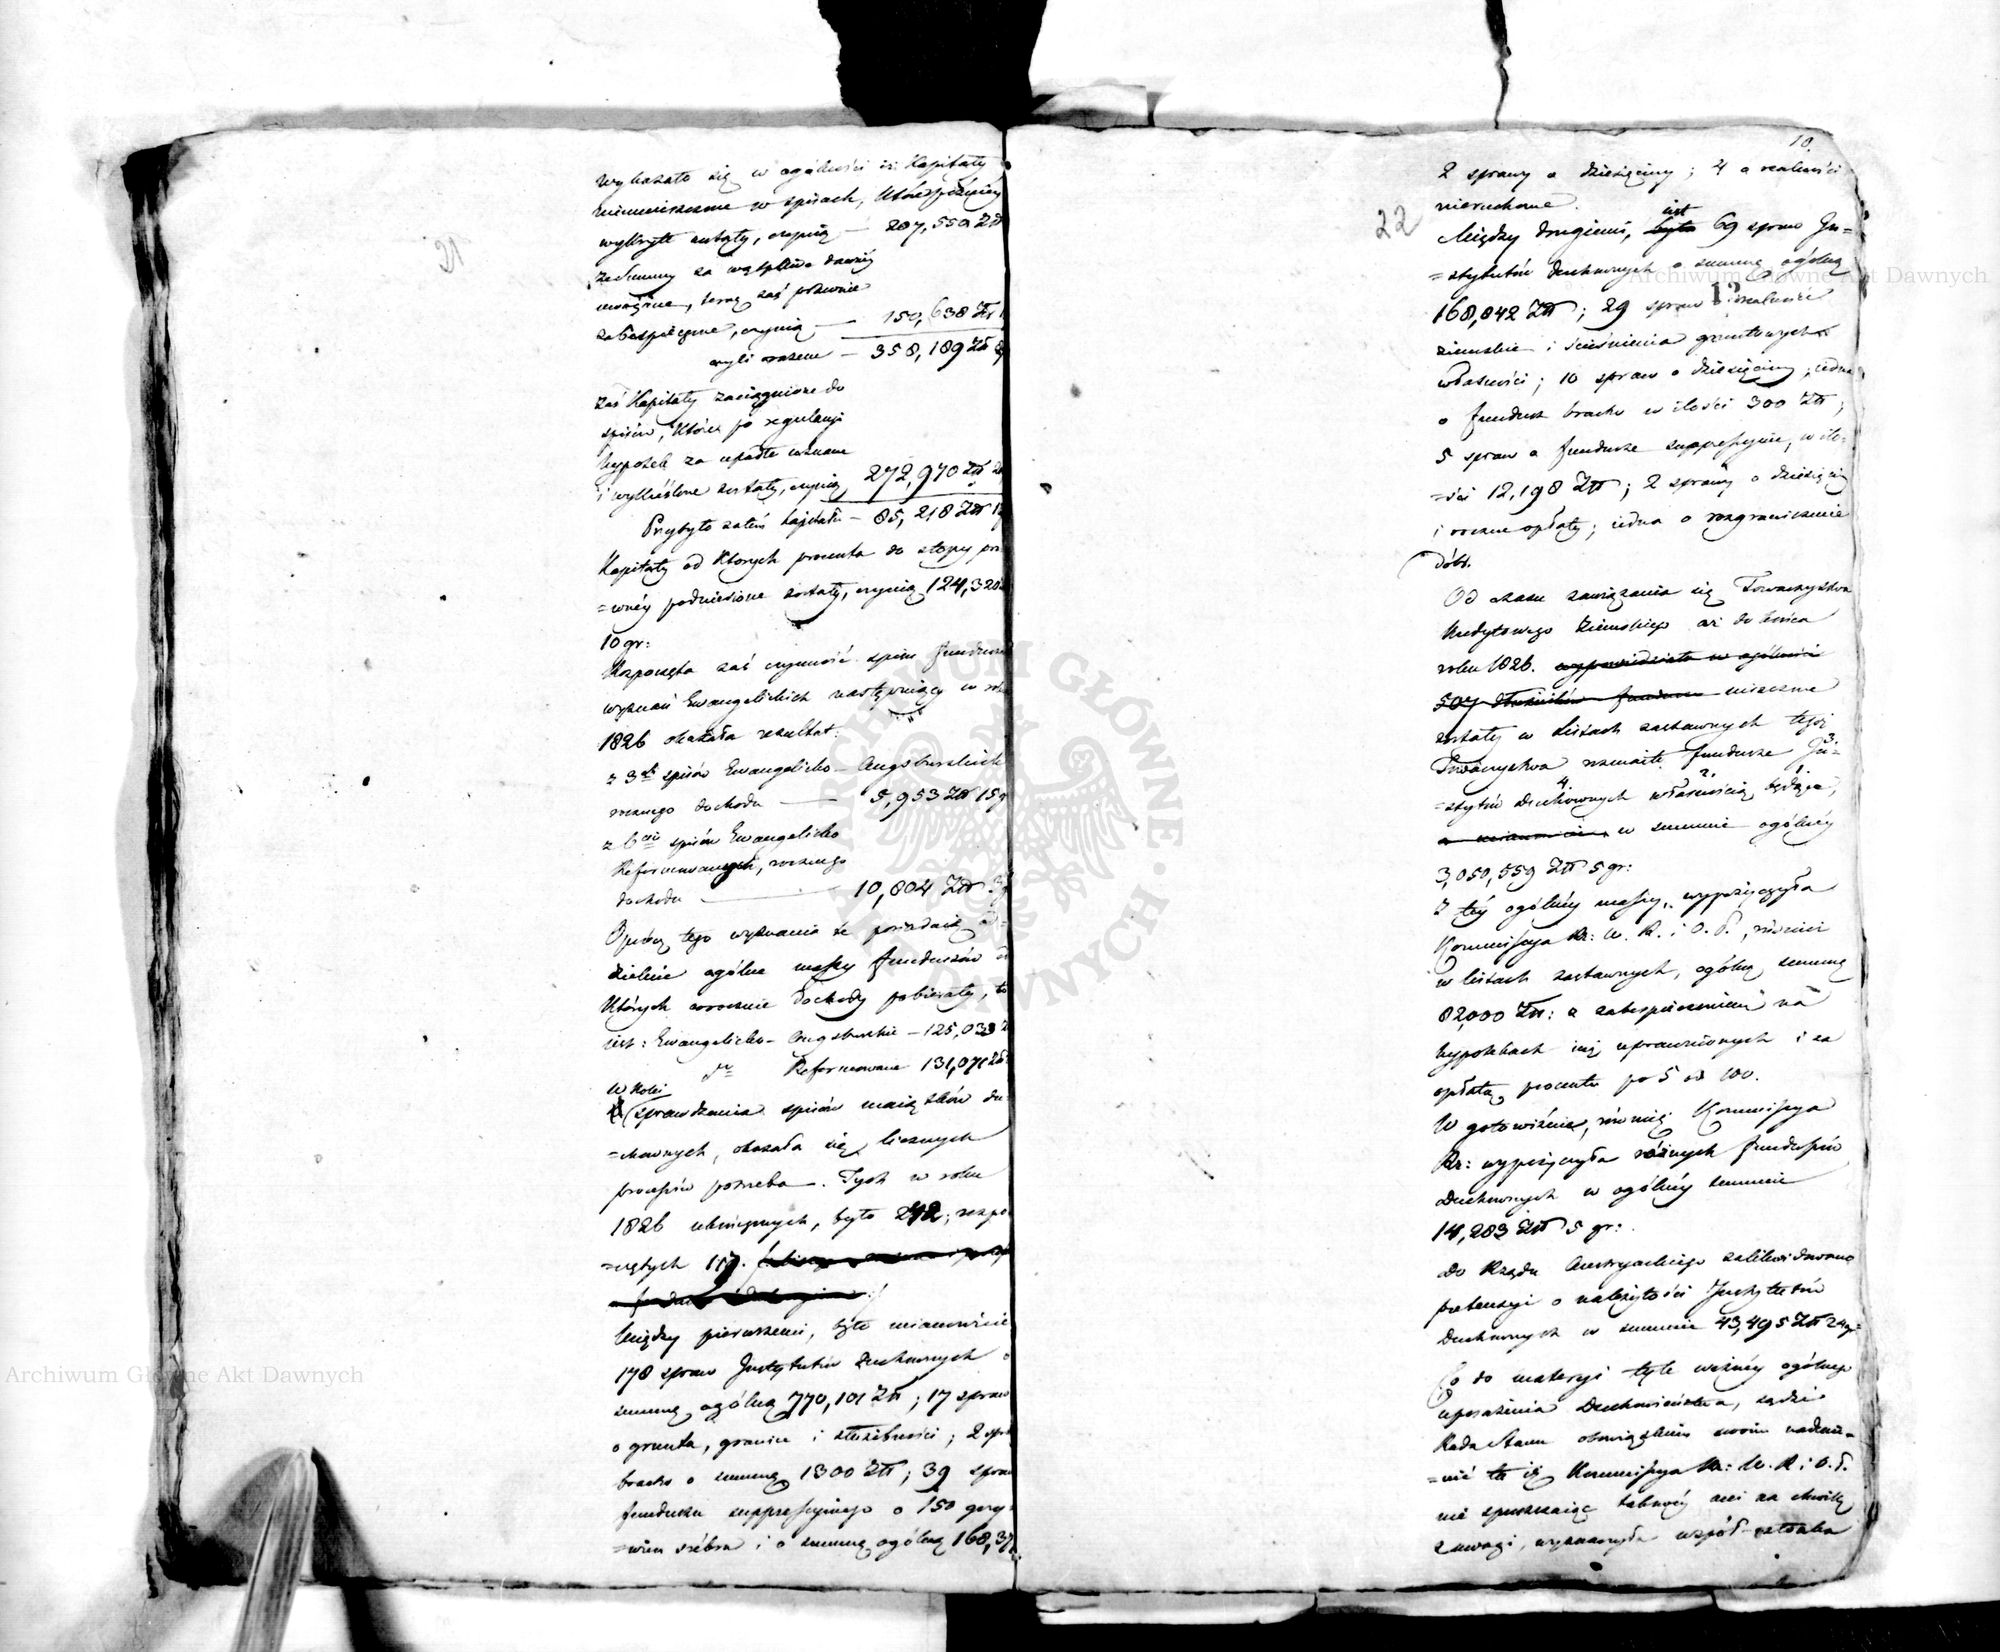 21
wykazało się w ogólności iż Kapitały
nieumieszczone w spisach, które później
wykryte zostały, czynią — 207,550 Złł
ze Summy za wątpliwe dawniej
uważane, teraz zaś prawnie
zabespieczone, czynią — 150,638 Zł
czyli razem — 358,189 Złł
zaś Kapitały zaciągnione do
spisów, które po regulacyi
hypotek za upadłe uznane
i wykreślone zostały, czynią 272,970 Złł
Przybyło zatém kapitału — 85,218 Złł
Kapitały od których procenta do stopy pra
=wnéy podniesione zostały, czynią 124,320
10 gr:
Rozpoczęta zaś czynność spisu funduszów
wyznań Ewangelickich następujący w roku
1826 okazała rezultat:
z 3ch spisów Ewangelicko — Augsburskich
rocznego dochodu — 5,953 Złł 15 g
z 6ciu spisów Ewangelicko
Reformowanych, rocznego
dochodu — 10,804 Złł 3
Oprócz tego wyznania te posiadaią od=
dzielnie ogólne massy funduszów z
których corocznie dochody pobierały, to
iest: Ewangelicko- Augsburskie — 125,033
do Reformowane 131,071
W kolei
sprawdzania spisów maiątków du=
=chownych, okazała się licznych
processów potrzeba. Tych w roku
1826 ukończonych, było 242; rozpo
=czętych 117.
Między pierwszemi, było mianowicie
178 spraw Instytutów duchownych o
summę ogólną 770,101 Złł; 17 spraw
o grunta, granice i służebności; 2 spr
bractw o summę 1300 Złł; 39 spraw
funduszu suppressyinego o 150 grzy=
=wien srébra i o summę ogólną 168,37
10.
22
12
2 sprawy o dziesięciny; 4 o realności
nieruchome.
iest
Między drugiemi, było 69 spraw In=
=stytutów duchownych o summę ogólną
168,842 Złł; 29 spraw o realności
ziemskie i ścieśnienia gruntowych
własności; 10 spraw o dziesięciny; iedna
o fundusz bractw w ilości 300 Złł;
5 spraw o fundusze suppressyine, w ilo=
=ści 12,198 Złł; 2 sprawy o dziesięciny
i roczne opłaty; iedna o rozgraniczenie
dóbr.
Od czasu zawiązania się Towarzystwa
Kredytowego Ziemskiego aż do końca
roku 1826. wypowiedziało w ogólności
507 dłużników fundusze mieszczone
zostały w Listach zastawnych tegoż
Towarzystwa rozmaite fundusze In=3
=stytów duchownych4 własnością2 będące1,
a mianowicie, w summie ogólnéy
3,050,559 Złł 5 gr:
Z téy ogólnéy massy, wypożyczyła
Kommissya Rz: W. R. i O. P., również
w listach zastawnych, ogólną summę
82,000 Złł: z zabespieczeniem na
hypotekach iuż uprawnionych i za
opłatą procentu po 5 od 100.
W gotowiźnie, również Kommissya
Rz: wypożyczyła różnych funduszów
Duchownych w ogólnéy summie
14,283 Złł 5 gr:
Do Rządu Austryackiego zalikwidowano
pretensyi o należytości Instytutów
Duchownych w summie 43,495 Złł 24 gr:
Co do materyi tyle ważnéy ogólnego
uposażenia Duchowieństwa, sądzi
Rada Stanu obowiązkiem swoim nadmie=
=nić tu iż Kommissya Rz: W. R. i O. P.
nie spuszczaiąc takowéy ani na chwilę
z uwagi, wyznaczyła współ-członka
Archiwum Główne Akt Dawnych
Archiwum Główne Akt Dawnych
ARCHIWUM GŁÓWNE AKT DAWNYCH